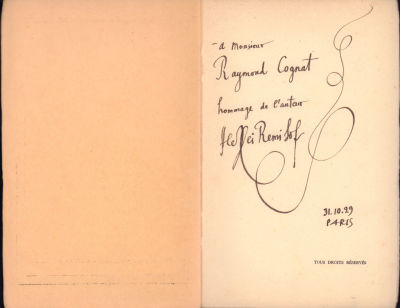 - à Monsieur
Raymond Cognat
hommage de l'auteur
Alexei Remisof
31.10.29
PARIS
TOUS DROITS RÉSERVÉS